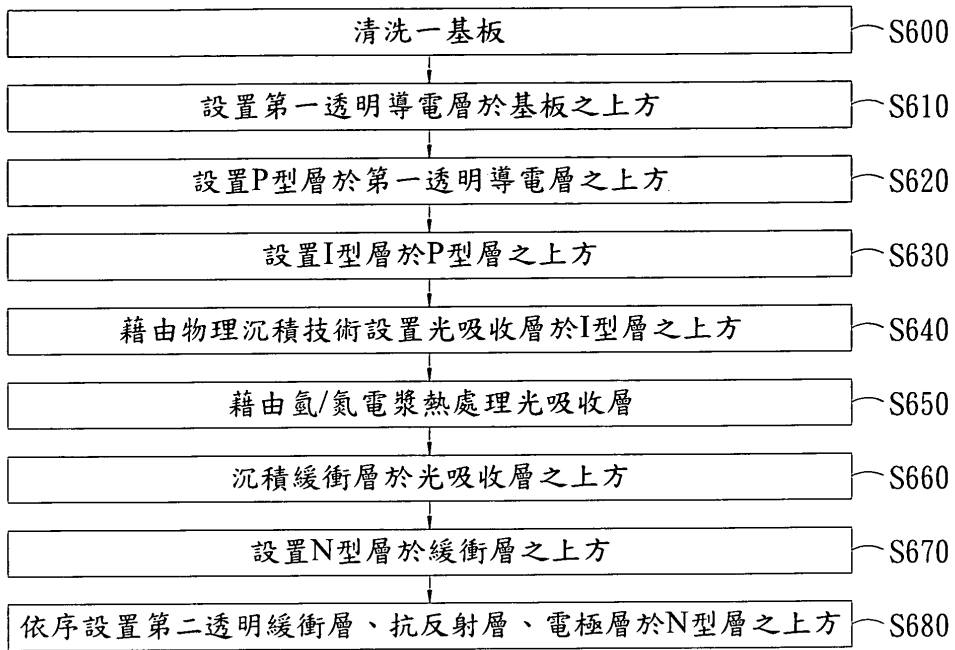 清洗一基板
S600
設置第一透明導電層於基板之上方
S610
設置P型層於第一透明導電層之上方
S620
設置I型層於P型層之上方
S630
藉由物理沉積技術設置光吸收層於I型層之上方
S640
藉由氬/氮電漿熱處理光吸收層
S650
沉積緩衝層於光吸收層之上方
S660
設置N型層於緩衝層之上方
S670
依序設置第二透明緩衝層、抗反射層、電極層於N型層之上方
S680